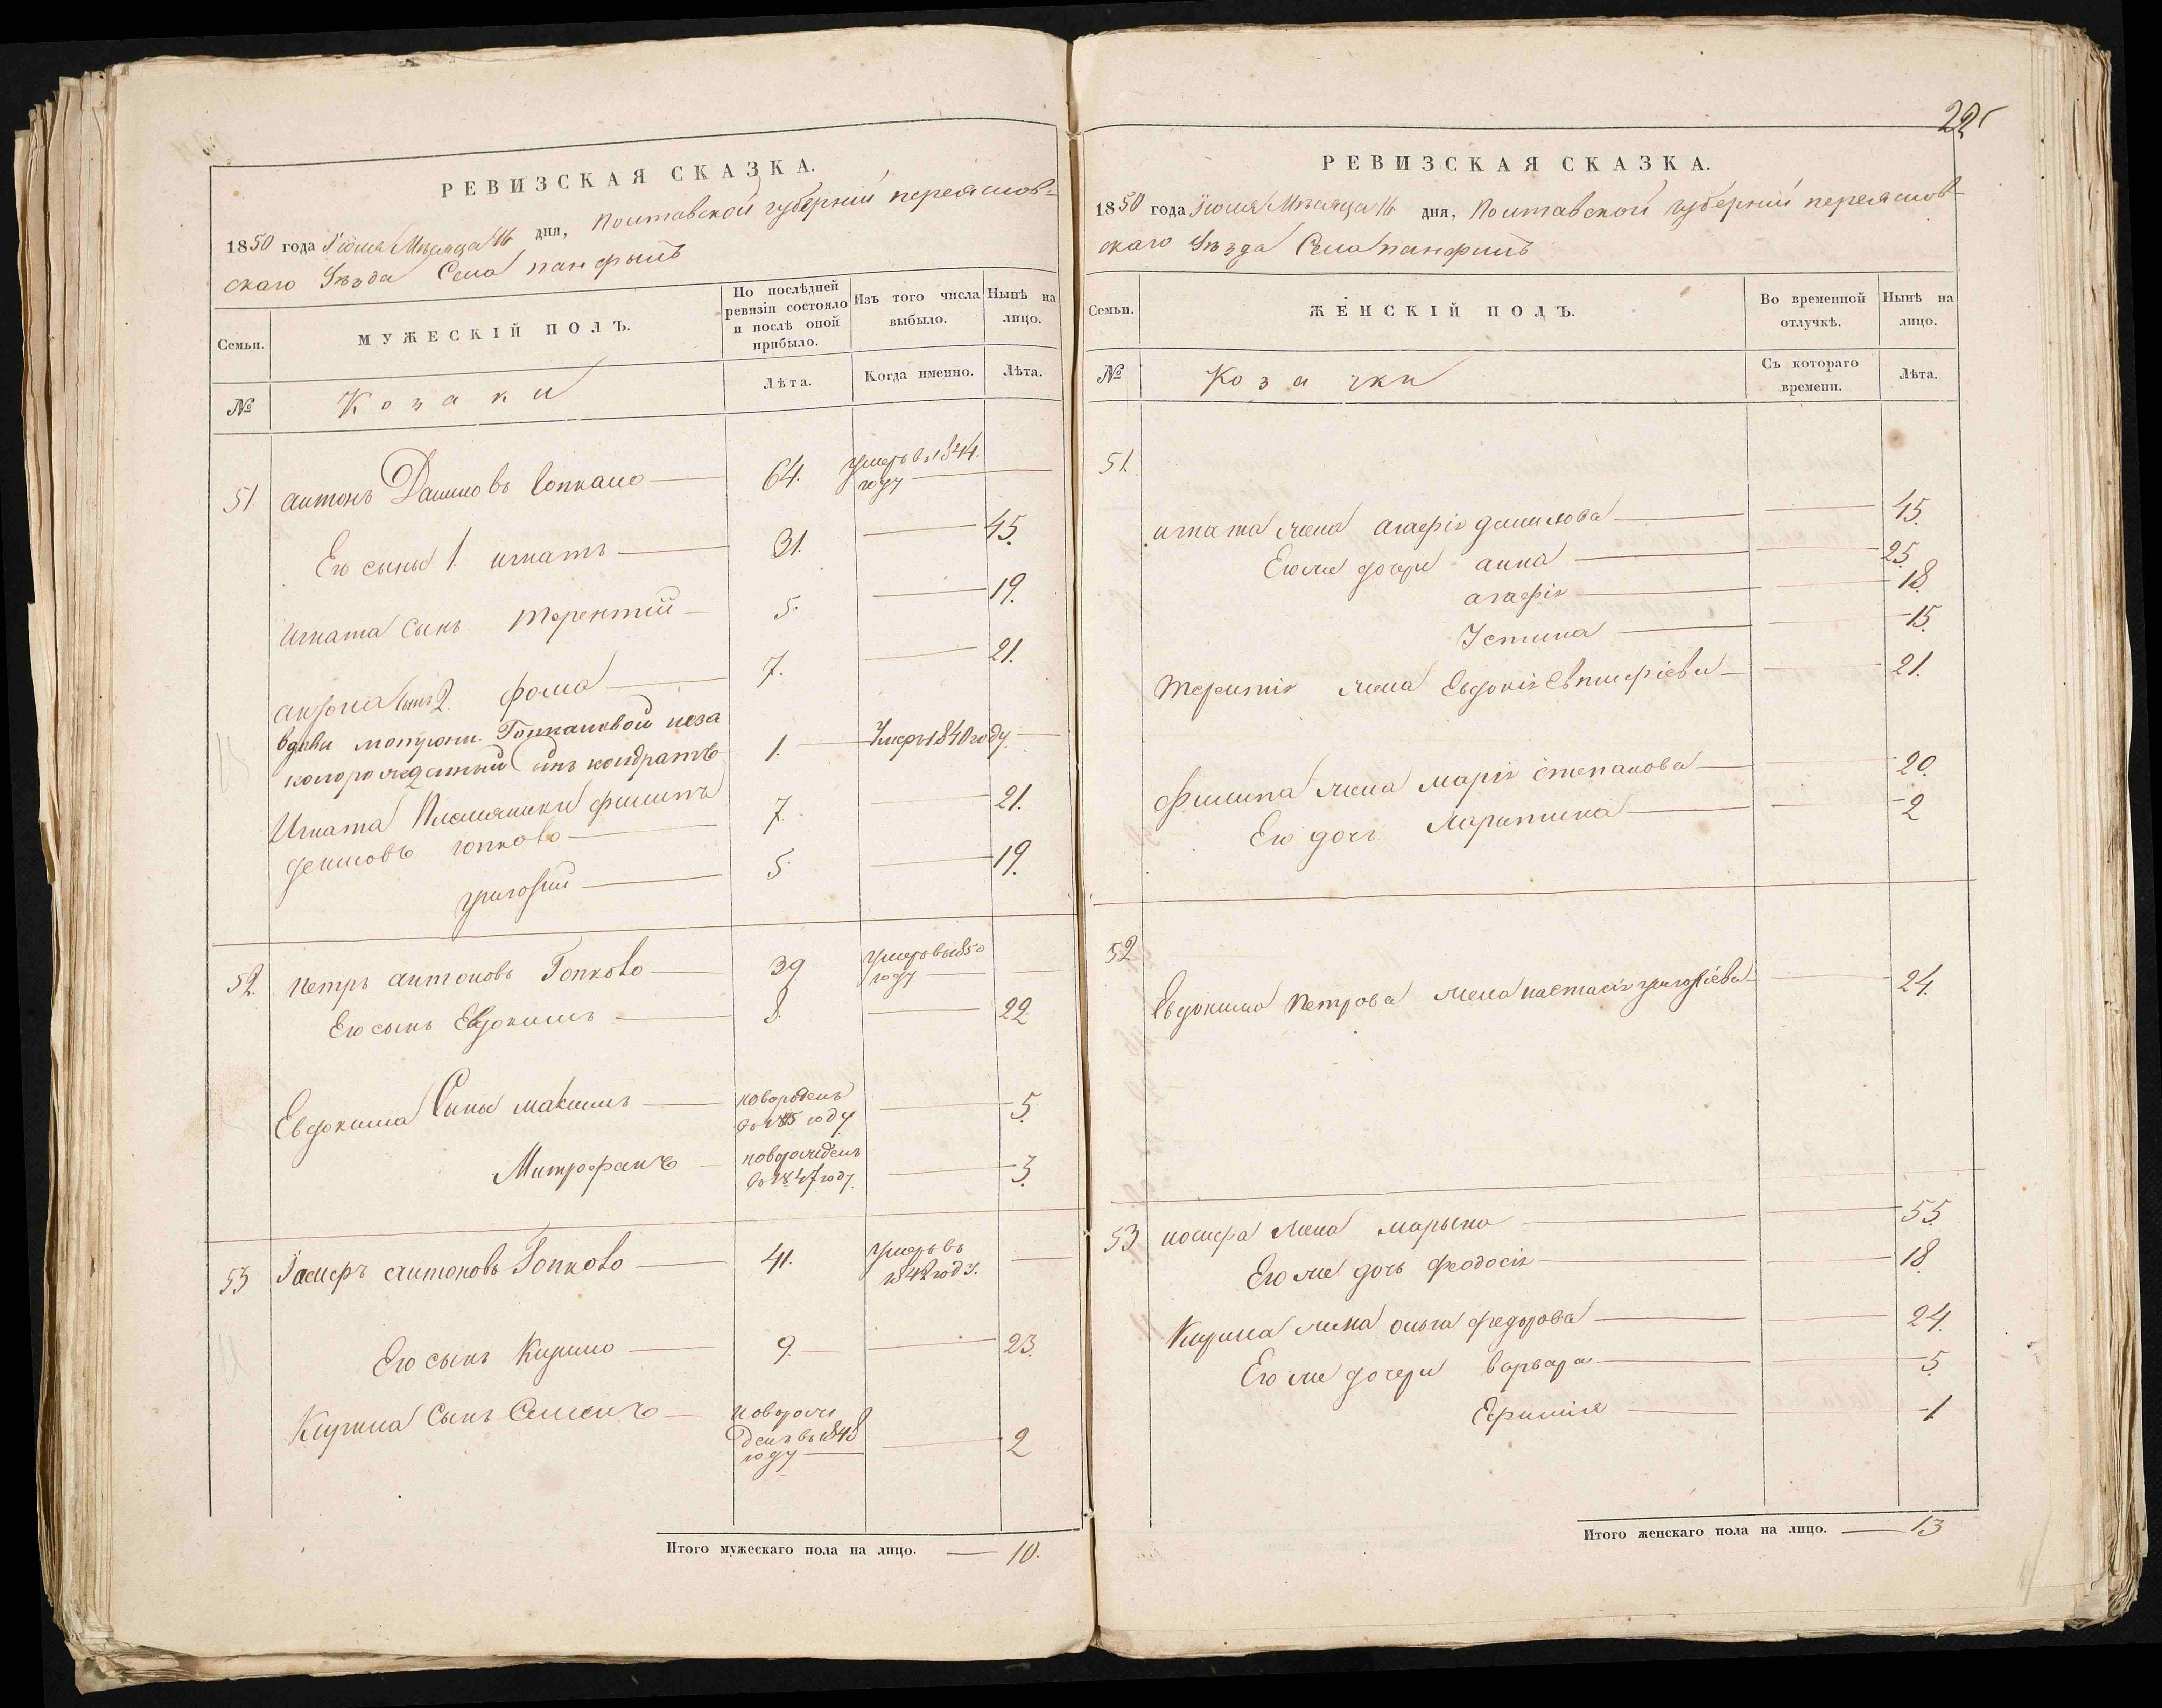 РЕВИЗСКАЯ СКАЗКА.
1850 года Іюля Мѣсяца 16 дня, Полтавской губерніи переяслов-
скаго Уѣзда Села панфылъ
Семьи.
МУЖЕСКІЙ ПОЛЪ.
По послѣдней ревизіи состояло и послѣ оной прибыло.
Изъ того числа выбыло.
Нынѣ на лицо.
№
Козаки
Лѣта.
Когда именно.
Лѣта.
51. антонъ Даниловъ 64. умеръ въ 1844. году
Его сыны 1 игнатъ 31. 45.
Игната сынъ терентій 5. 19.
антона сынъ 2. фома 7. 21.
вдовы мотроны неза
конорожденный сынъ кондратъ 1. Умеръ 1840 году
Игната Племяники филипъ 7. 21.
денисовъ гопкало
григорій 5. 19.
52. петръ антоновъ Гопкало 39 умеръ въ 1850 году
Его сынъ Евдокимъ 8. 22.
Евдокима Сыны максимъ новорожденъ въ 1845 году 5.
Митрофанъ новорожденъ въ 1847 году 3.
53 Іосифъ антоновъ Гопкало 41. умеръ въ 1842 году.
Его сынъ Кирило 9. 23.
Кирила Сынъ Семенъ новорожденъ въ 1848 году 2
Итого мужескаго пола на лицо. 10.
22
РЕВИЗСКАЯ СКАЗКА.
1850 года Іюля Мѣсяца 16 дня, Полтавской губерніи переяслов-
скаго Уѣзда Села панфилъ
Семьи.
ЖЕНСКІЙ ПОЛЪ.
Во временной отлучкѣ.
Нынѣ на лицо.
№
Козачки
Съ котораго времени.
Лѣта.
51.
игната жена агафія данилова 45.
Его же дочери анна 25.
агафія 18.
Устина 15.
терентія жена Евдокія 21.
Филипа жена марія степанова 20.
Его дочь 2
52
Евдокима Петрова жена настасія григоріева 24.
53 иосифа жена марьяна 55
Его же дочь феодосія 18.
Кирила жена ольга федорова 24.
Его же дочери варвара 5.
Ефимія 1
Итого женскаго пола на лицо. 13